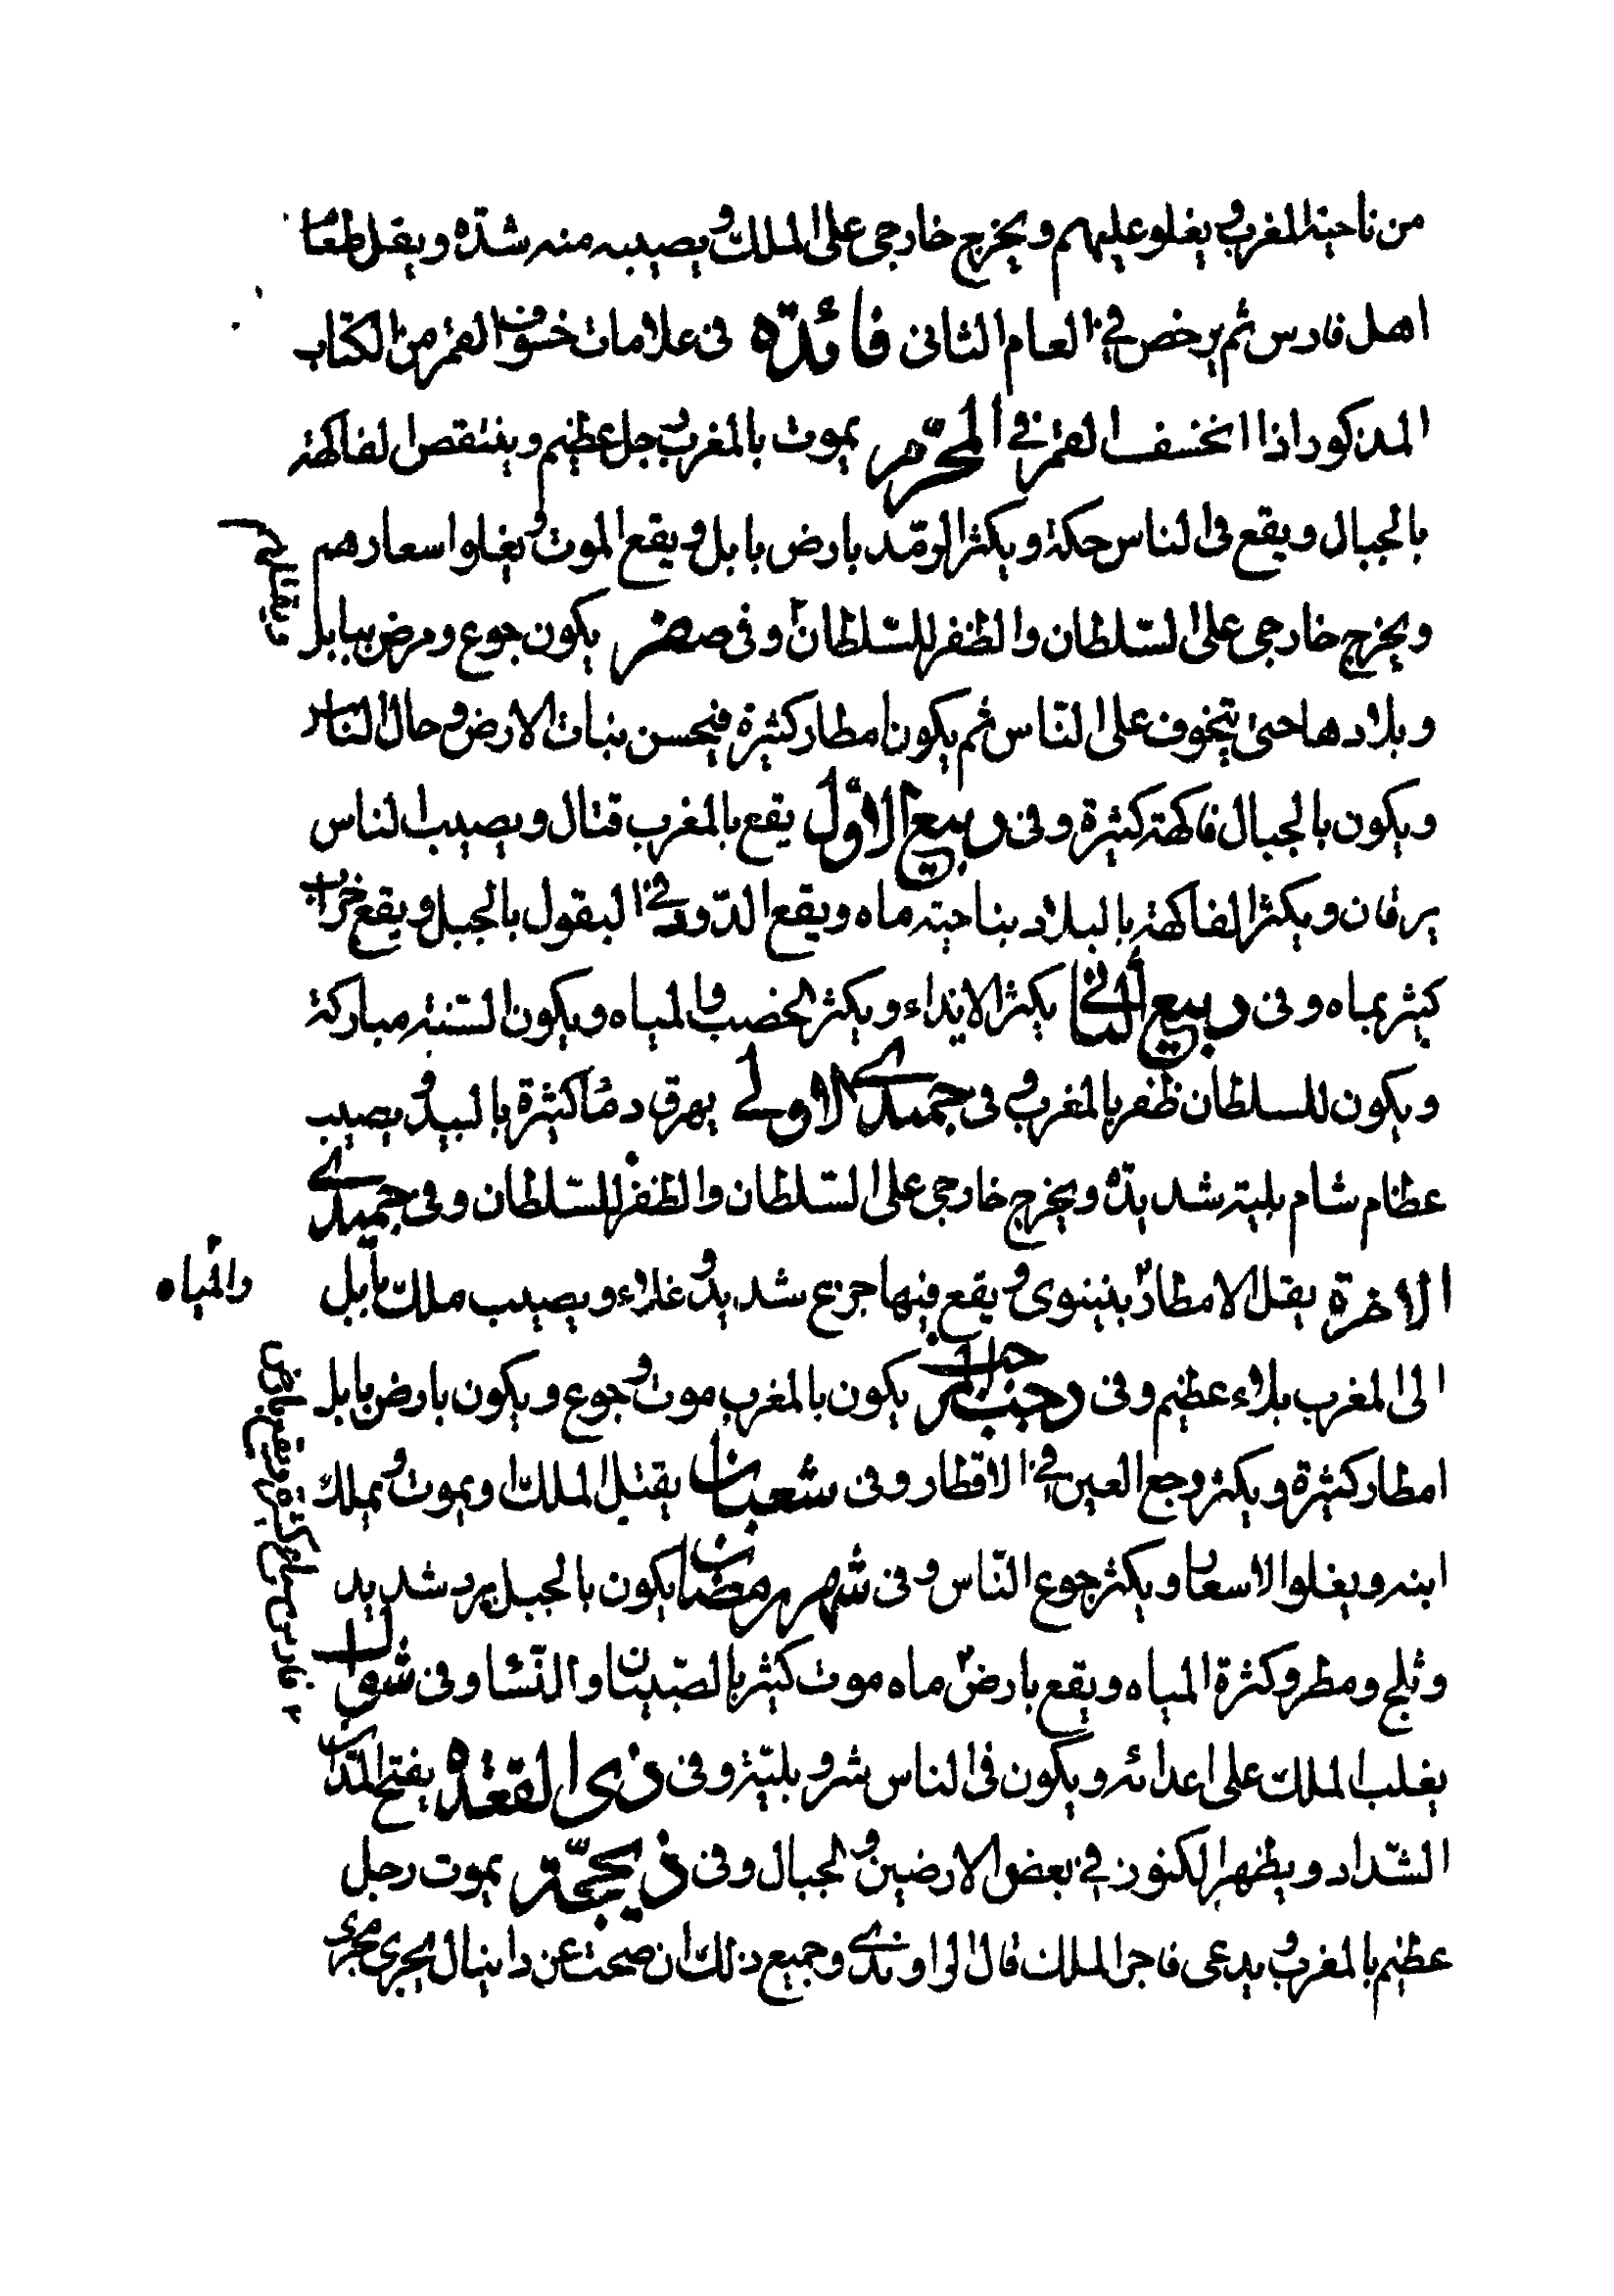 من ناحية المغرب و يغلو عليهم و يخرج خارجى على الملك و يصيبه منه شدّة و يقل طعام
اهل فارس ثم يرخص في العام الثانى فائدة فى علامات خسوف القمر من الكتاب
المذكور اذا انخسف القمر في المحرّم يموت بالمغرب رجل عظيم و ينتقص الفاكهة
بالجبال و يقع فى الناس حكة و يكثر الرمّد بارض بابل و يقع الموت و يغلوا اسعارهم
و يخرج خارجى على السّلطان و الظفر للسّلطان و فى صفر يكون جوع و مرض ببابل
و بلادها حتى يتخوف على النّاس ثم يكون امطار كثيرة فيحسن نبات الارض و حال الناس
و يكون بالجبال فاكهة كثيرة و فى ربيع الاوّل يقع بالمغرب قتال و يصيب الناس
يرقان و يكثر الفاكهة بالبلاد بناحية ماه و يقع الدّود في البقول بالجبل و يقع خراب
كثير بماه و فى ربيع الثانى يكثر الانداء و يكثر الخصب و المياه و يكون السّنة مباركة
و يكون للسلطان ظفر بالمغرب و فى جميدى الاولے يهرق دماً كثيرة بالبيد و يصيب
عظام شام بلية شديدة و يخرج خارجى على السّلطان و الظفر للسّلطان و فى جميدے
الاخرة يقل الامطار بنينوى و يقع فيها جزع شديد و غلاء و يصيب ملك بابل
و المياه
الى المغرب بلاء عظيم و فى رجب يكون بالمغرب موت و جوع و يكون بارض بابل
امطار كثيرة و يكثر وجع العين في الاقطار و فى شعبان يقتل الملك او يموت و يملك
ابنه و يغلوا الاسعار و يكثر جوع النّاس و فى شهر رمضان يكون بالجبل برد شديد
و ثلج و مطر و كثرة المياه و يقع بارض ماه موت كثير بالصّبيان و النّساء و فى شوال
يغلب الملك على اعدائه و يكون فى الناس شر و بليّة و فى ذى القعدة يفتح المدائن
الشّداد و يظهر الكنوز في بعض الارضين و الجبال و فى ذيحجّة يموت رجل
عظيم بالمغرب و يدعى فاجر الملك قال الراوندے و جميع ذلك ان صحت عن دانيال يجرى مجرى